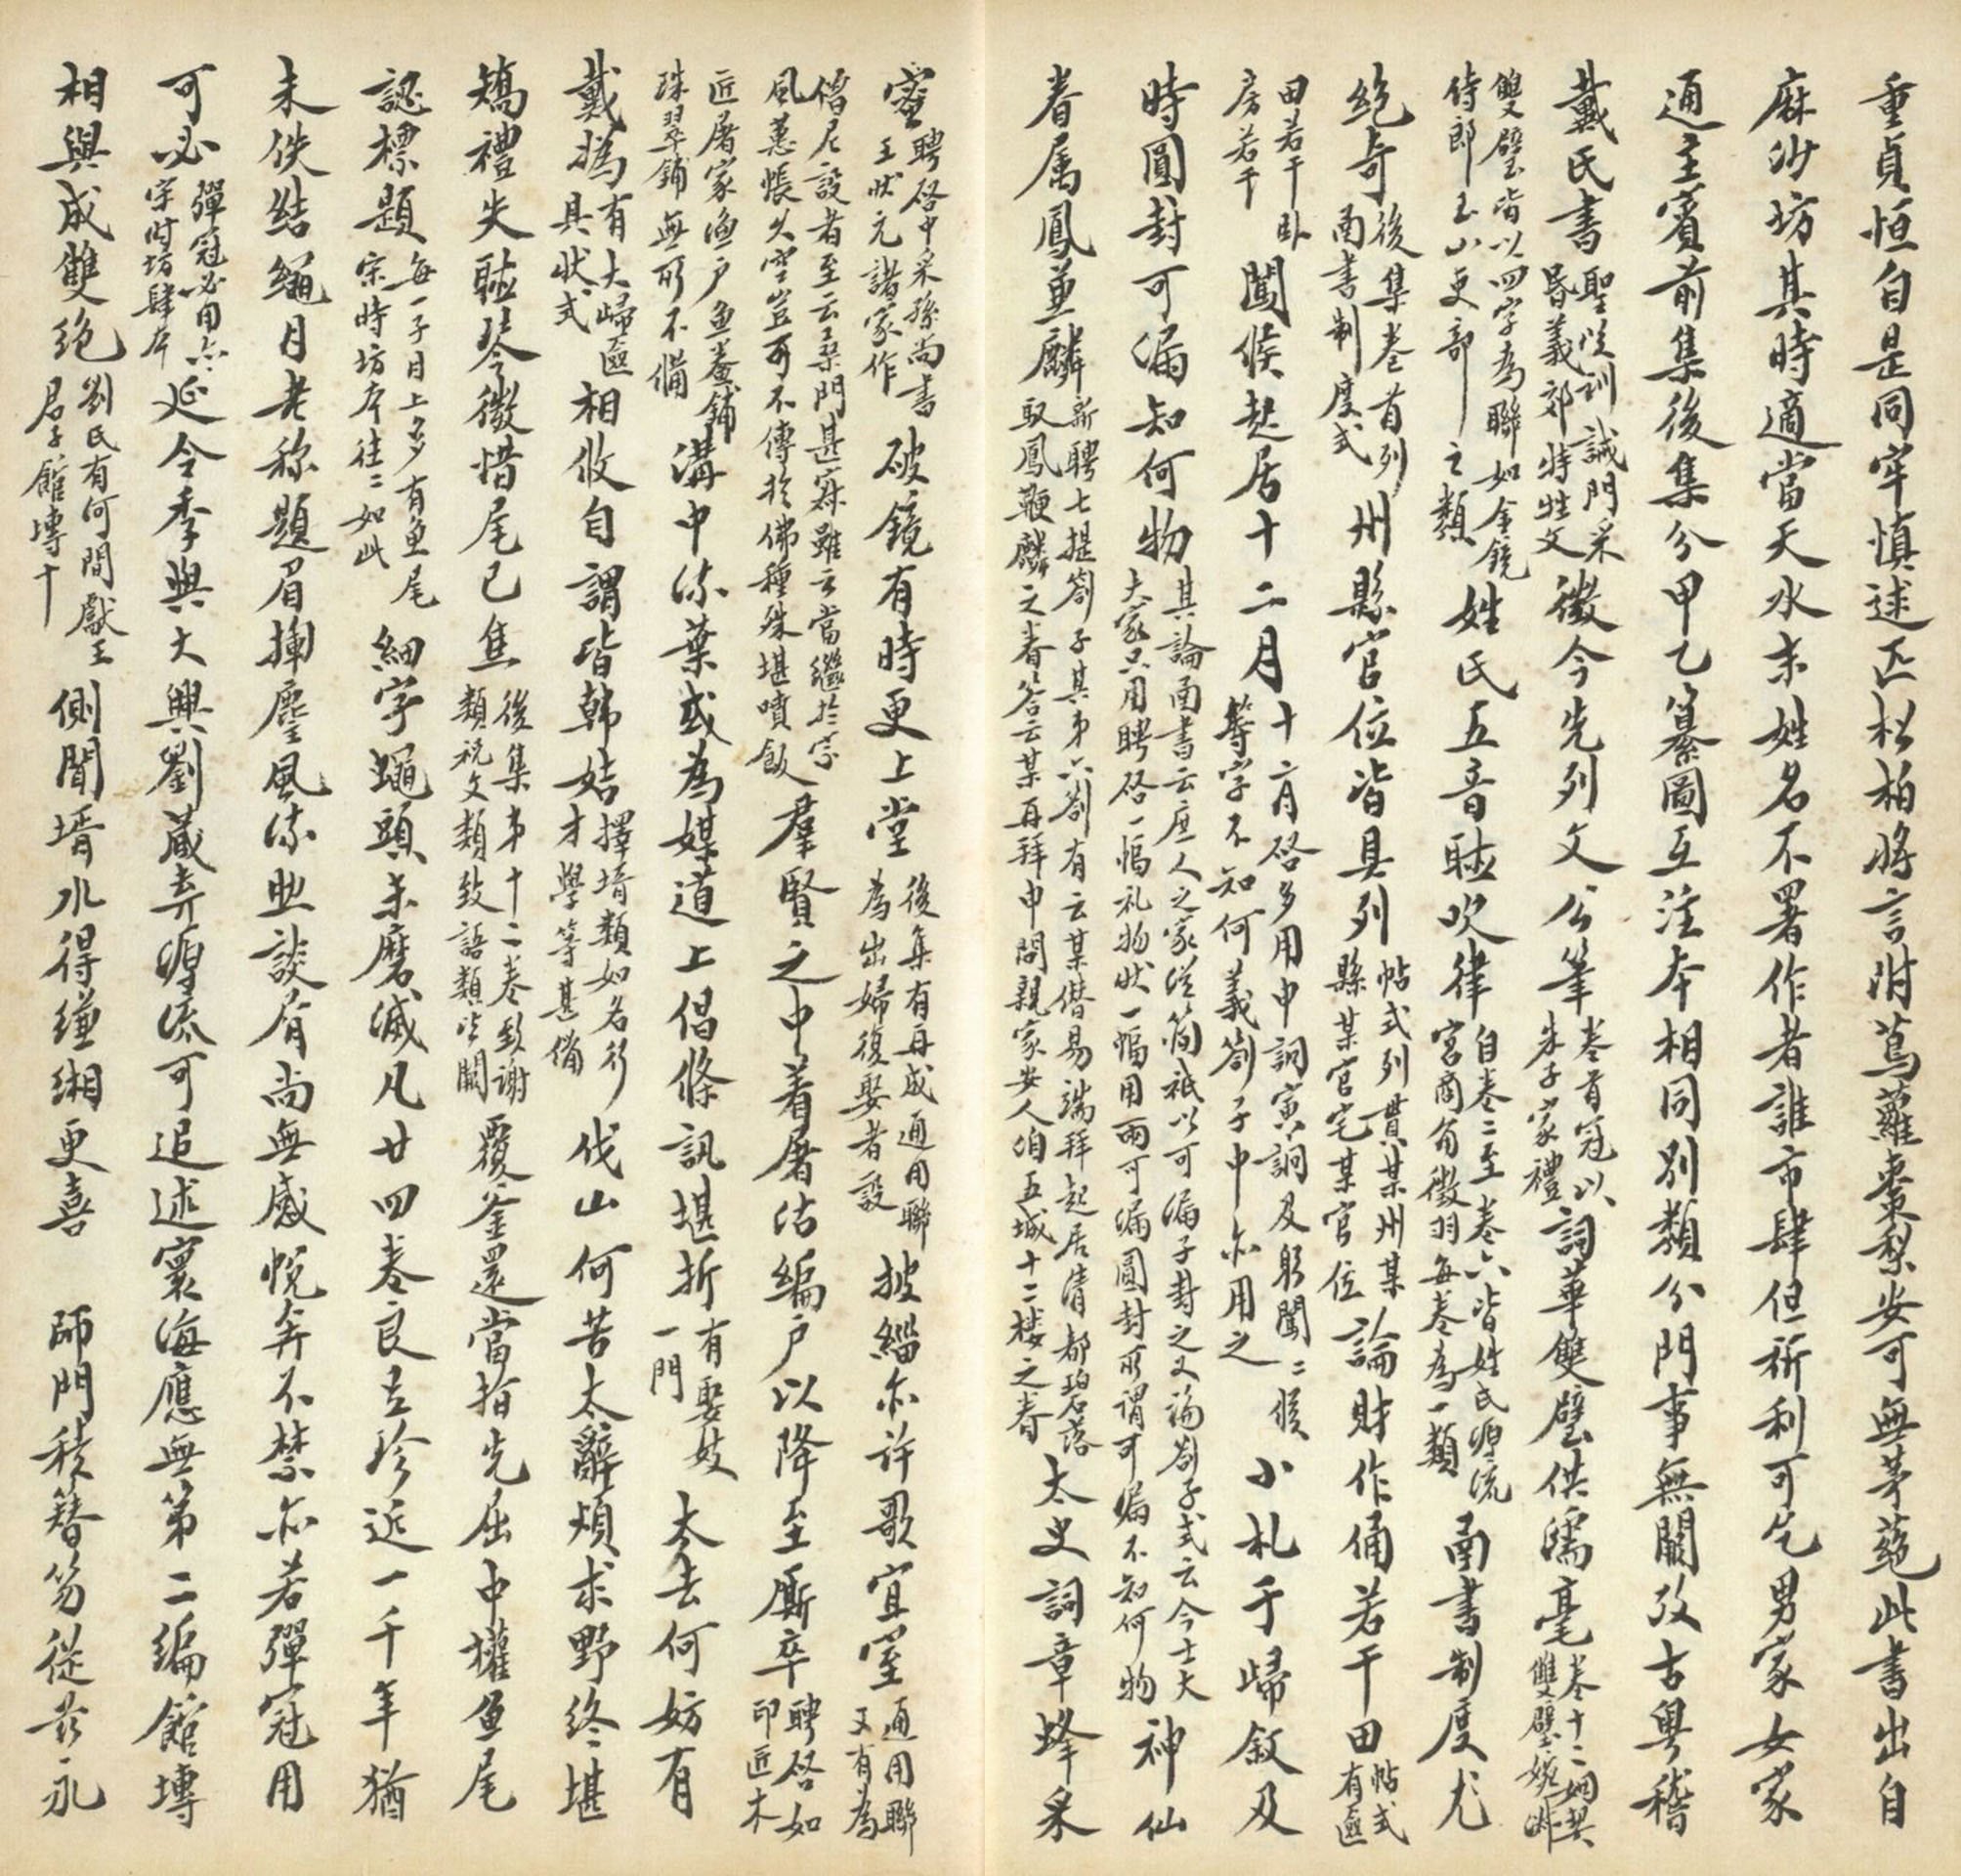 重貞恒自是同牢慎述匹松柏將言附蔦蘿棗梨安可無茅蕝此書出自
麻沙坊其時適當天水末姓名不署作者誰市肆但祈利可乞男家女家
通主賓前集後集分甲乙纂圖互注本相同別類分門事無闕攷古粵稽
戴氏書聖賢訓誡門采昏義郊特牲文徵今先列文公筆卷首冠以朱子家禮詞華雙璧供濡毫卷十二
雙璧皆以四字為聯如金鏡侍郎玉山吏部之類姓氏五音聽吹律自卷二至卷六皆姓氏源流宮商角徵羽每卷為一類南書制度尤
絕奇後集卷首列南書制度式州縣官位皆具列帖式列貫某州某縣某官宅某官位論財作俑若干田帖式有匳
田若干臥房若干闈候起居十二月十二月啓多用申詞寅詞及躬闈二候等字不知何義劄子中亦用之小札于歸敘及
時圓封可漏知何物其論南書云庶人之家從簡祇以可漏子封之又論劄子式云今士大夫家只用聘啓一幅礼物狀一幅用兩可漏圓封所謂可漏不知何物神仙
眷属鳳並麟新聘七提劄子其第六劄有云某僭易端拜起居清都碧落馭鳳鞭麟之眷答云某再拜申問親家安人伯五城十二楼之眷太史詞章蜂采
蜜聘啓中采孫尚書王狀元諸家作破鏡有時更上堂後集有再成通用聯為出婦復娶者設披緇亦許歌宜室通用聯又有為
僧尼設者至云桑門甚寂雖云當繼於宗風蕙帳久空豈可不傳於佛種殊堪噴飯羣賢之中着屠沽編户以降至廝卒聘啓如印匠木
匠屠家漁户魚菴鋪珠翠鋪無所不備溝中流葉或為媒道上倡條訊堪折有娶妓一門太去何妨有
戴媯有大歸匳具狀式相攸自謂皆韓姞擇壻類如名行才學等甚備伐山何苦太辭煩求野終堪
矯禮失聽琴徽惜尾已焦後集第十二卷致謝類祝文類致語類皆闕覆釜還當指先屈中權魚尾
認標題每一子目上多有魚尾宋時坊本往二如此細字蠅頭未磨滅凡廿四卷良足珍近一千年猶
未佚結繩月老称題眉揮麈風流出談屑尚無感悅弁不禁亦若彈冠用
可必彈冠必用亦宋時坊肆本延令季與大興劉藏弆源流可追述寰海應無第二編館塼
相與成雙絕劉氏有河間獻王君子館塼十側聞壻水得縑緗更喜 師門積簪笏從茲永